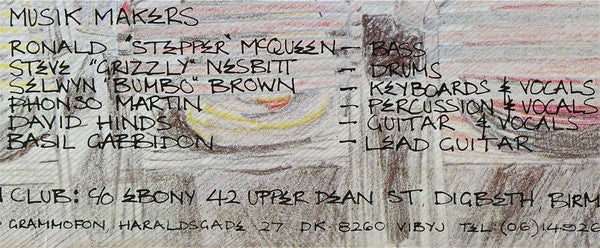 MUSIK MAKERS
RONALD "STEPPER" McQUEEN – BASS
STEVE "GRIZZLY" NESBITT – DRUMS
SELWYN "BUMBO" BROWN – KEYBOARDS & VOCALS
PHONSO MARTIN – PERCUSSION & VOCALS
DAVID HINDS – GUITAR & VOCALS
BASIL GABBIDON – LEAD GUITAR
CLUB: C/O EBONY 42 UPPER DEAN ST. DIGBETH, BIRM
GRAMMOFON, HARALDSGADE 27 DK 8260 VIBYJ TEL: (06)